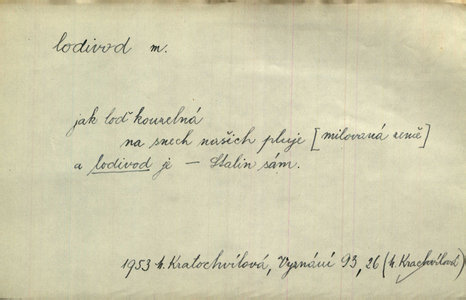 lodivod m.
jak loď kouzelná
na snech našich pluje [milovaná země]
a lodivod je – Stalin sám.
1953 M. Kratochvílová, Vyznání 93, 26 (M. Krachvílová)